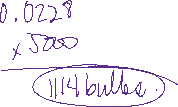 0.0228
x 5000
114 bulbs.